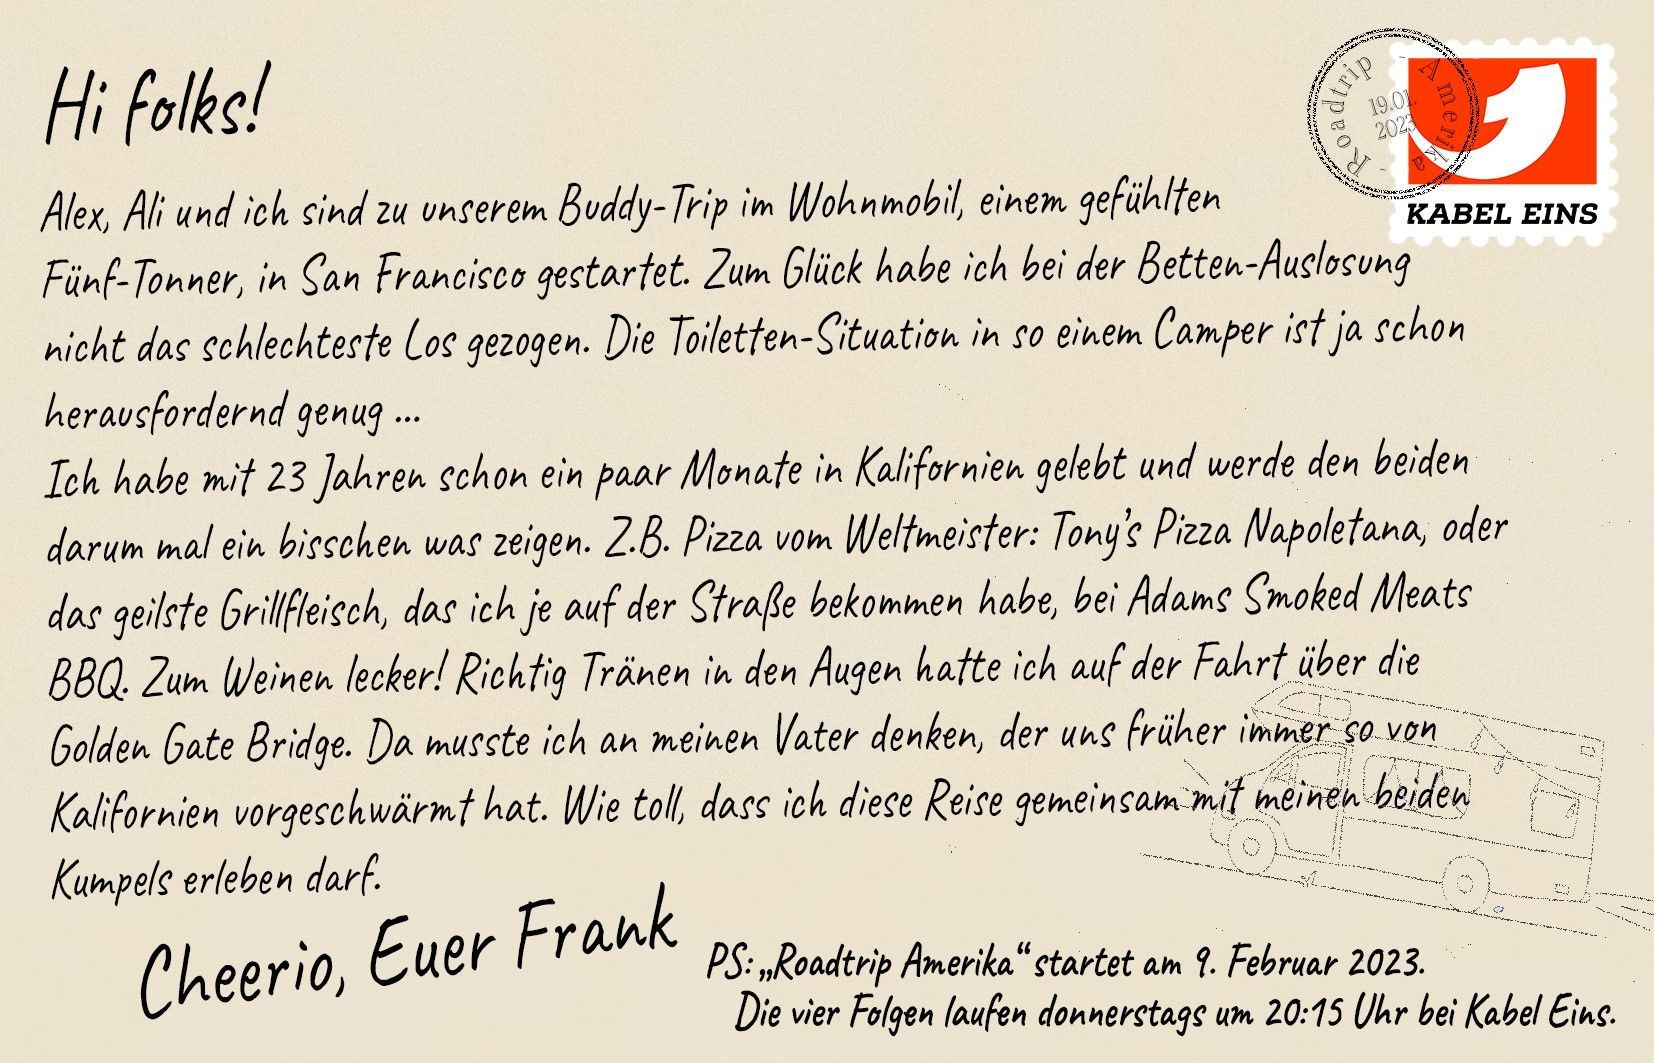 Hi folks!
Roadtrip - Amerika -
19.01.
2023
KABEL EINS
Alex, Ali und ich sind zu unserem Buddy-Trip im Wohnmobil, einem gefühlten
Fünf-Tonner, in San Francisco gestartet. Zum Glück habe ich bei der Betten-Auslosung
nicht das schlechteste Los gezogen. Die Toiletten-Situation in so einem Camper ist ja schon
herausfordernd genug ...
Ich habe mit 23 Jahren schon ein paar Monate in Kalifornien gelebt und werde den beiden
darum mal ein bisschen was zeigen. Z.B. Pizza vom Weltmeister: Tony's Pizza Napoletana, oder
das geilste Grillfleisch, das ich je auf der Straße bekommen habe, bei Adams Smoked Meats
BBQ. Zum Weinen lecker! Richtig Tränen in den Augen hatte ich auf der Fahrt über die
Golden Gate Bridge. Da musste ich an meinen Vater denken, der uns früher immer so von
Kalifornien vorgeschwärmt hat. Wie toll, dass ich diese Reise gemeinsam mit meinen beiden
Kumpels erleben darf.
Cheerio, Euer Frank
PS: „Roadtrip Amerika“ startet am 9. Februar 2023.
Die vier Folgen laufen donnerstags um 20:15 Uhr bei Kabel Eins.